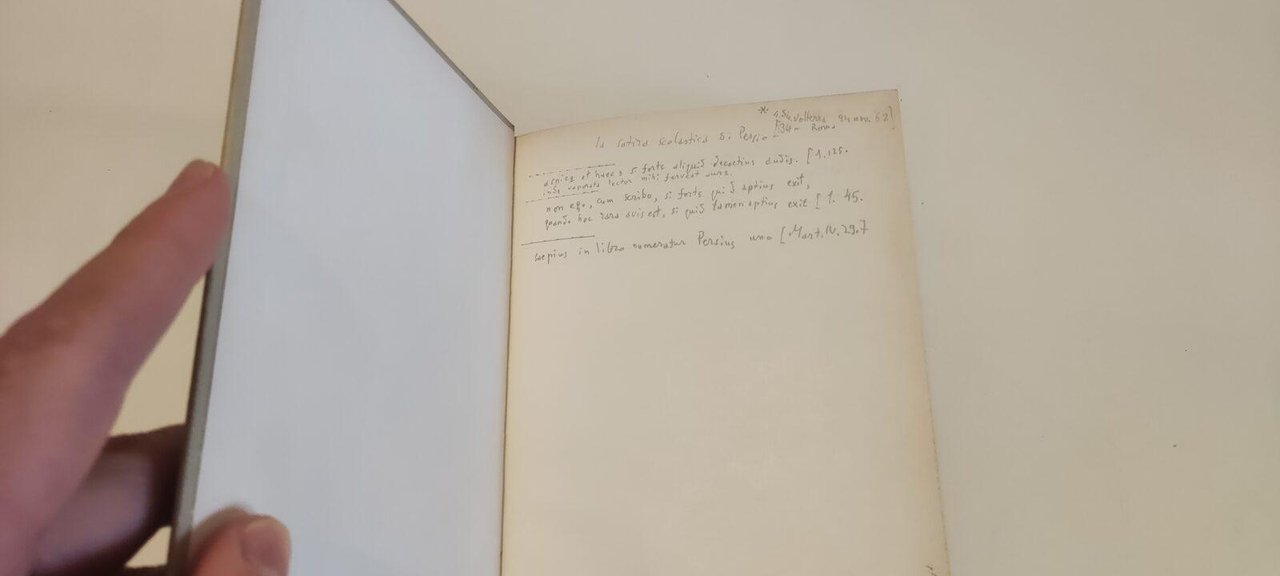 * 4.34. Volterra 24 nov. 62]
[34 - Roma
la satira scolastica di Persio
aspice et haec si forte aliquid decoctius audis. [1.125.
inde vaporata lector mihi ferveat aure.
non ego, cum scribo, si forte quid aptius exit,
quando hoc rara avis est, si quid tamen aptius exit [1. 45.
saepius in libro numeratur Persius uno [Mart. IV. 29.7